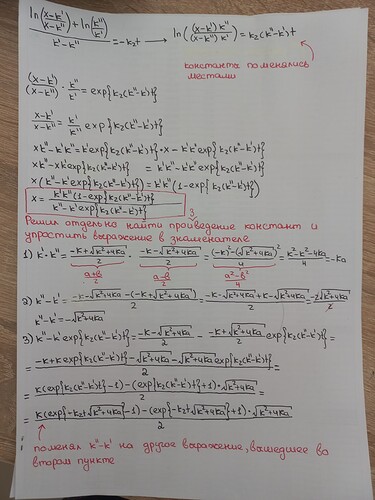 ln((x-k')/(x-k'')) + ln(k''/k') / k'-k'' = -k₂t → ln((x-k')k''/(x-k'')k') = k₂(k''-k')t
константа поменялись
местами
(x-k')/(x-k'') · k''/k' = exp{k₂(k''-k')t}
x-k'/x-k'' = k'/k'' exp{k₂(k''-k')t}
xk''-k'k'' = k'exp{k₂(k''-k')t}·x - k''k'exp{k₂(k''-k')t}
xk''-xk'exp{k₂(k''-k')t} = k'k''-k'k''exp{k₂(k''-k')t}
x(k''-k'exp{k₂(k''-k')t}) = k'k''(1-exp{k₂(k''-k')t})
x = k'k''(1-exp{k₂(k''-k')t}) / k''-k'exp{k₂(k''-k')t}
3.
Решил отдельно найти произведение констант и
упростить выражение в знаменателе
1) k'·k'' = -K+√K²+4Ka/2 · -K-√K²+4Ka/2 = (-K)²-(√K²+4Ka)²/4 = K²-K²-4Ka/4 = -Ka
a+b/2 a-b/2 a²-b²/4
2) k''-k' = -K-√K²+4Ka/2 - (-K+√K²+4Ka)/2 = -K-√K²+4Ka+K-√K²+4Ka/2 = -2√K²+4Ka/2
k''-k' = -√K²+4Ka
3) k''-k'exp{k₂(k''-k')t} = -K-√K²+4Ka/2 - -K+√K²+4Ka/2 exp{k₂(k''-k')t} =
= -K+Kexp{k₂(k''-k')t}-√K²+4Ka-√K²+4Ka exp{k₂(k''-k')t}/2 =
= K(exp{k₂(k''-k')t}-1)-(exp{k₂(k''-k')t}+1)·√K²+4Ka/2 =
= K(exp{-k₂t√K²+4Ka}-1)-(exp{-k₂t√K²+4Ka}+1)·√K²+4Ka/2
поменял k''-k' на другое выражение, вышедшее во
втором пункте